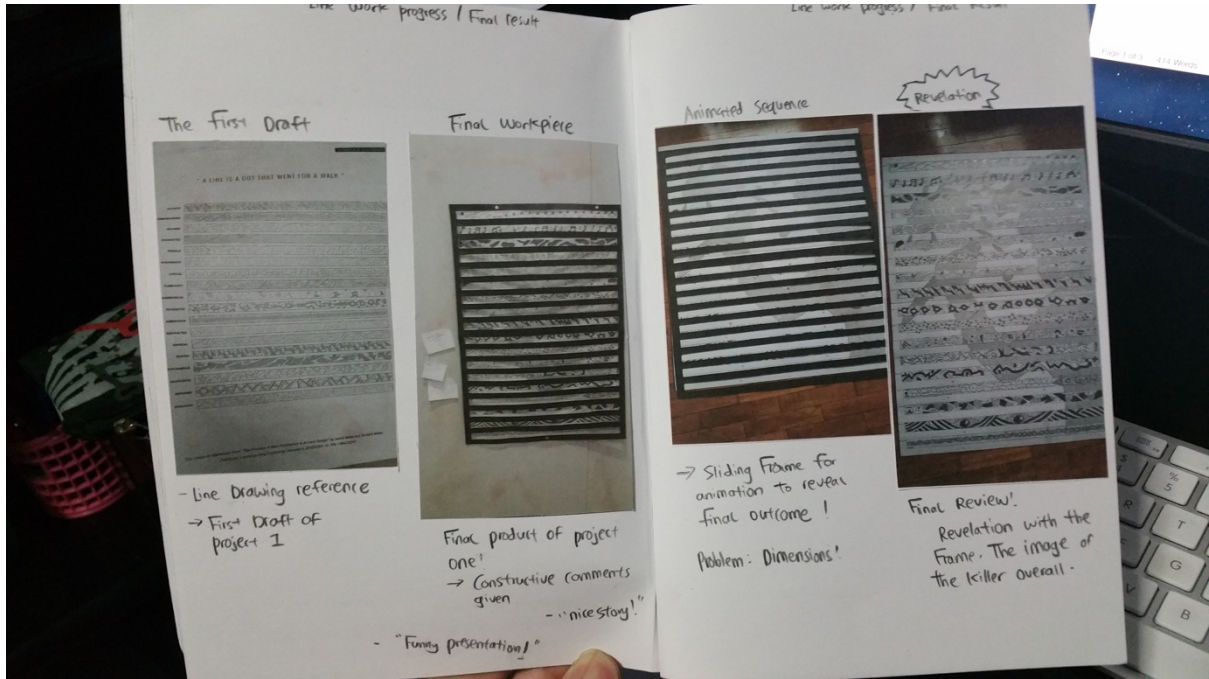 Line work progress / Final result
The First Draft
" A LINE IS A DOT THAT WENT FOR A WALK "
- Line Drawing reference
→ First Draft of
project 1
Final Workpiece
Final product of project
one!
→ Constructive comments
given
- "nice story!"
- "Funny presentation!"
Line work progress / Final result
Animated Sequence
→ Sliding Frame for
animation to reveal
final outcome !
Problem: Dimensions!
Revelation
Final Review!
Revelation with the
Frame. The image of
the killer overall.
Page 1 of 3 414 Words
%
5
R
T
G
V
B